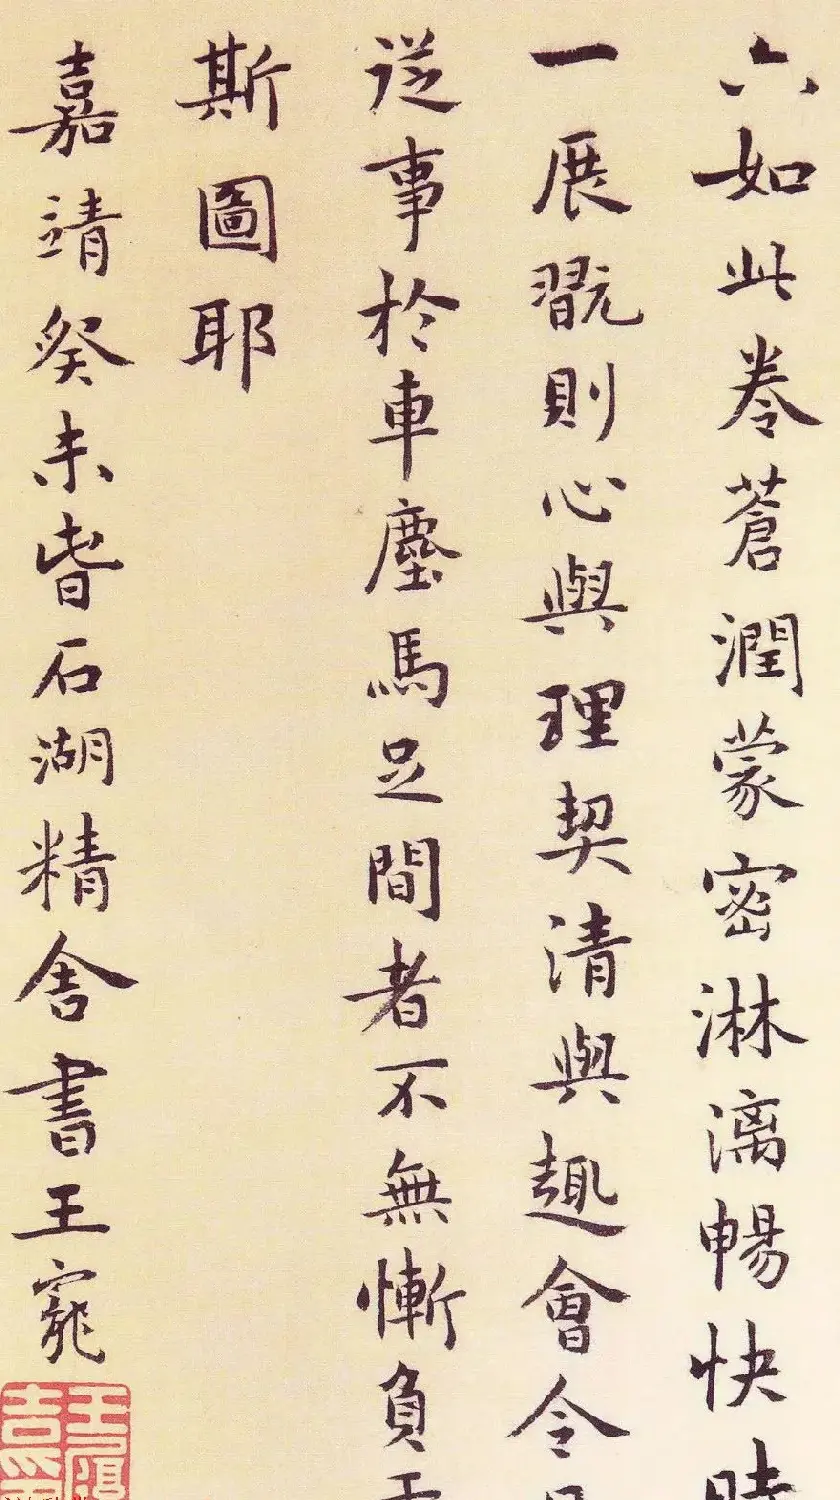 六如此卷蒼潤蒙密淋漓暢快時
一展翫則心與理契清與趣會令
從事於車塵馬足間者不無慚負
斯圖耶
嘉靖癸未昔石湖精舍書王寵